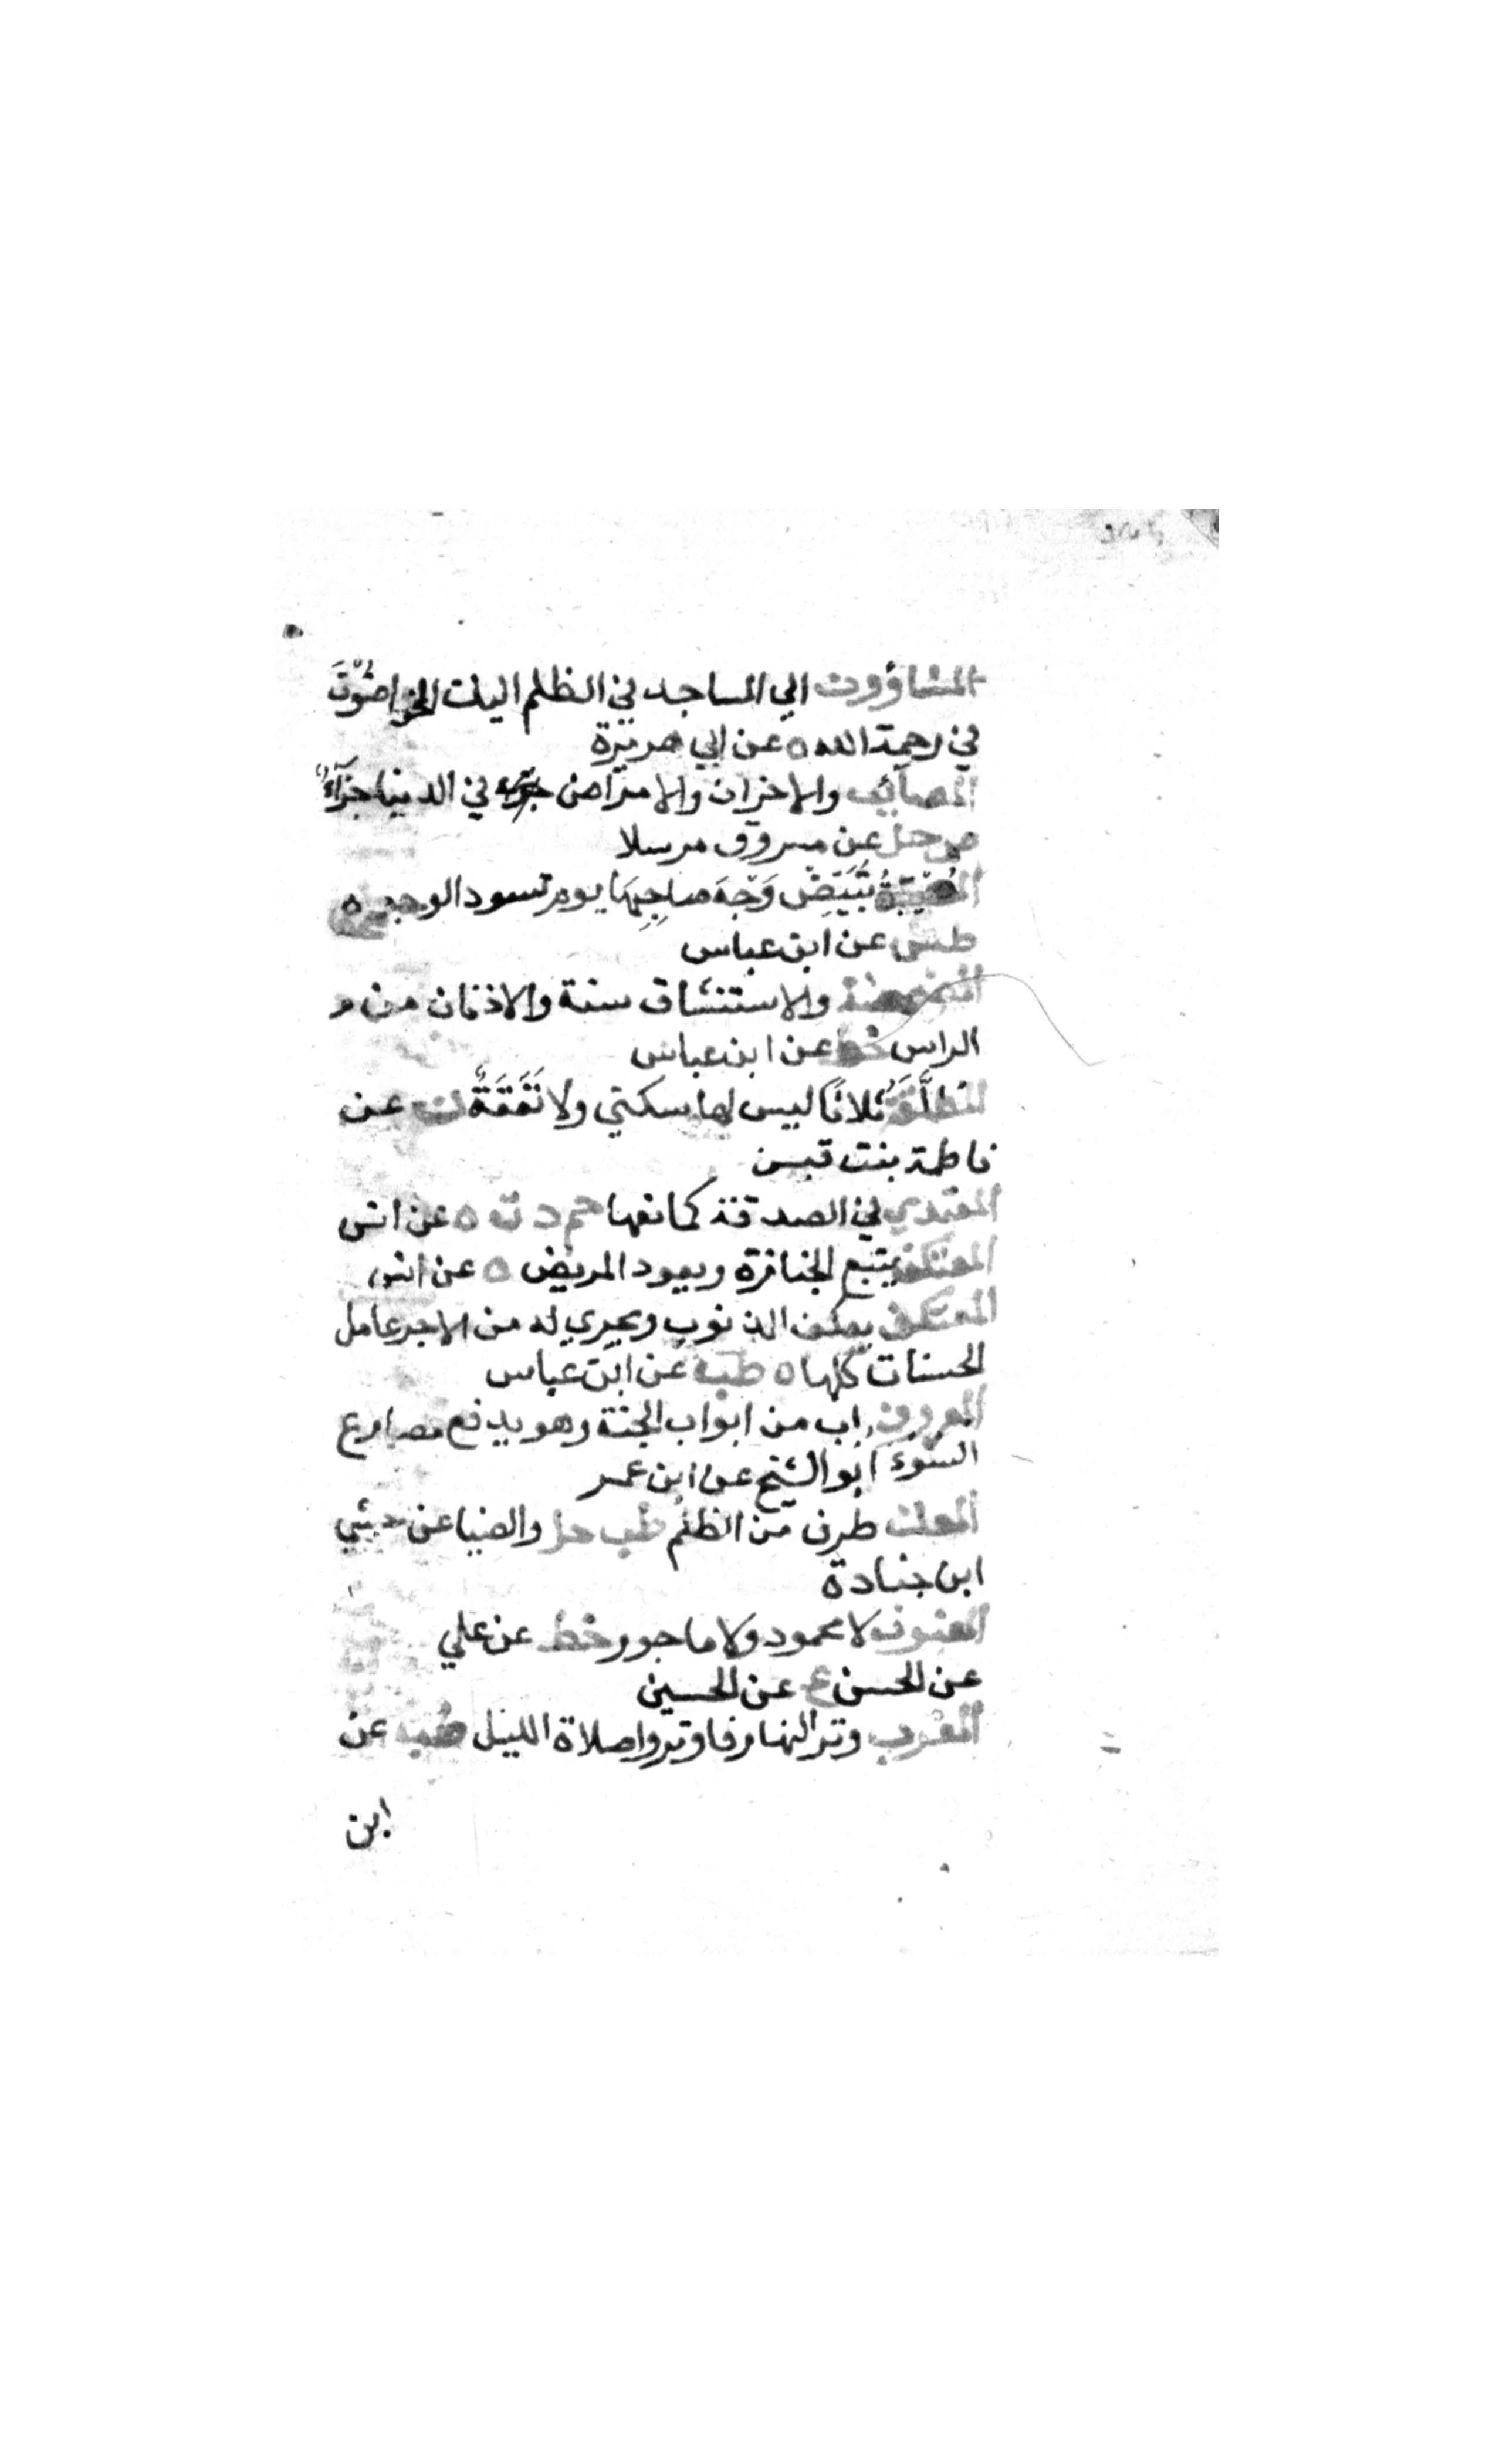 المشاؤون الي المساجد في الظلم اوليك الخواضُوْنَ
في رحمة الله ه عن ابي هريرة
المصائب والاحزان والامراض في الدنيا جَزَآءٌ
ص حل عن مسروق مرسلا
المصيبةُ تُبَيِّضُ وَجْهَ صاحِبِهَا يوم تسود الوجوه
طس عن ابن عباس
المضمضة والاستنشاق سنة والاذنان من
الراس خط عن ابن عباس
المُطَلَّقَةُ ثلاثًا ليس لها سكني ولا نَفَقَةٌ ن عن
فاطمة بنت قيس
المعتدي في الصدقة كمانعها حم د ت ه عن انس
المعتكف يتبع الجنازة ويعود المريض ه عن انس
المعتكف يعكف الذنوب ويجري له من الاجر عامل
الحسنات كلها ه طب عن ابن عباس
المعروف باب من ابواب الجنة وهو يدفع مصارع
السُّوءَ ابو الشيخ عن ابن عمر
المعك طرف من الظلم طب حل والضيا عن حبشي
ابن جنادة
المغبون لا محمود ولا ماجور خط عن علي
عن الحسن ع عن الحسين
المغرب وتر النهار فاوتروا صلاة الليل طب عن
ابن